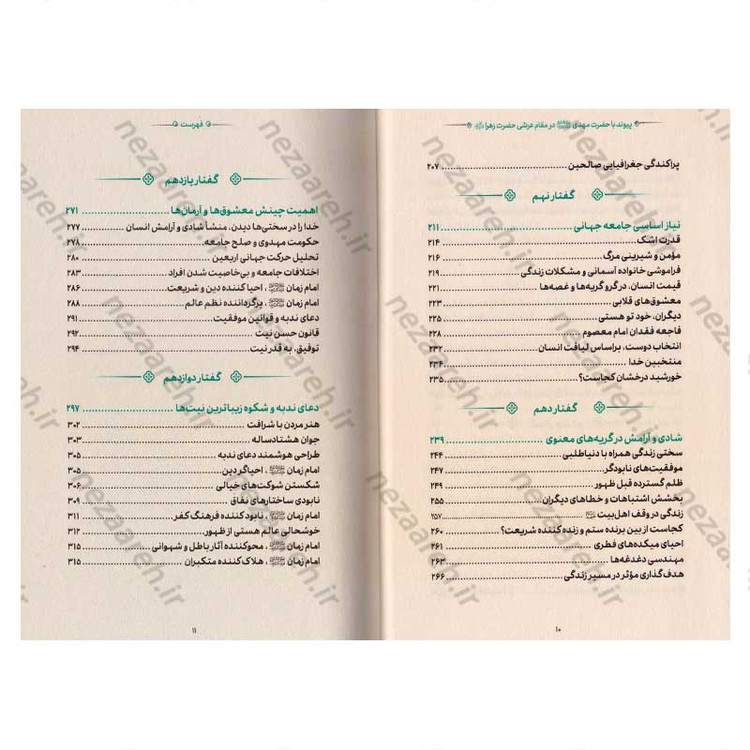 پیوند با حضرت مهدی در مقام عرشی حضرت زهرا
پراکندگی جغرافیایی صالحین ۲۰۷
گفتار نهم
نیاز اساسی جامعه جهانی ۲۱۱
قدرت اشک ۲۱۴
مؤمن و شیرینی مرگ ۲۱۶
فراموشی خانواده آسمانی و مشکلات زندگی ۲۱۹
قیمت انسان، در گرو گریه‌ها و غصه‌ها ۲۲۱
معشوق‌های قلابی ۲۲۳
دیگران، خود تو هستی ۲۲۵
فاجعه فقدان امام معصوم ۲۲۸
انتخاب دوست، براساس لیاقت انسان ۲۳۲
منتخبین خدا ۲۳۴
خورشید درخشان کجاست؟ ۲۳۵
گفتار دهم
شادی و آرامش در گریه‌های معنوی ۲۳۹
سختی زندگی همراه با دنیاطلبی ۲۴۴
موفقیت‌های نابودگر ۲۴۷
ظلم گسترده قبل ظهور ۲۴۹
بخشش اشتباهات و خطاهای دیگران ۲۵۵
زندگی در وقف اهل‌بیت ۲۵۷
کجاست از بین برنده ستم و زنده کننده شریعت؟ ۲۶۰
احیای میکده‌های فطری ۲۶۱
مهندسی دغدغه‌ها ۲۶۳
هدف‌گذاری مؤثر در مسیر زندگی ۲۶۶
۱۰
فهرست
گفتار یازدهم
اهمیت چینش معشوق‌ها و آرمان‌ها ۲۷۱
خدا را در سختی‌ها دیدن، منشأ شادی و آرامش انسان ۲۷۷
حکومت مهدوی و صلح جامعه ۲۷۸
تحلیل حرکت جهانی اربعین ۲۸۰
اختلافات جامعه و بی‌خاصیت شدن افراد ۲۸۳
امام زمان، احیا کننده دین و شریعت ۲۸۶
امام زمان، برگرداننده نظم عالم ۲۸۸
دعای ندبه و قوانین موفقیت ۲۹۱
قانون حسن نیت ۲۹۲
توفیق، به قدر نیت ۲۹۴
گفتار دوازدهم
دعای ندبه و شکوه زیباترین نیت‌ها ۲۹۷
هنر مردن با شرافت ۳۰۲
جوان هشتادساله ۳۰۳
طراحی هوشمند دعای ندبه ۳۰۵
امام زمان، احیاگر دین ۳۰۵
شکستن شوکت‌های خیالی ۳۰۶
نابودی ساختارهای نفاق ۳۰۹
امام زمان، نابود کننده فرهنگ کفر ۳۱۱
خوشحالی عالم هستی از ظهور ۳۱۲
امام زمان، محوکننده آثار باطل و شهوانی ۳۱۵
امام زمان، هلاک‌کننده متکبران ۳۱۵
۱۱
nezaareh.ir